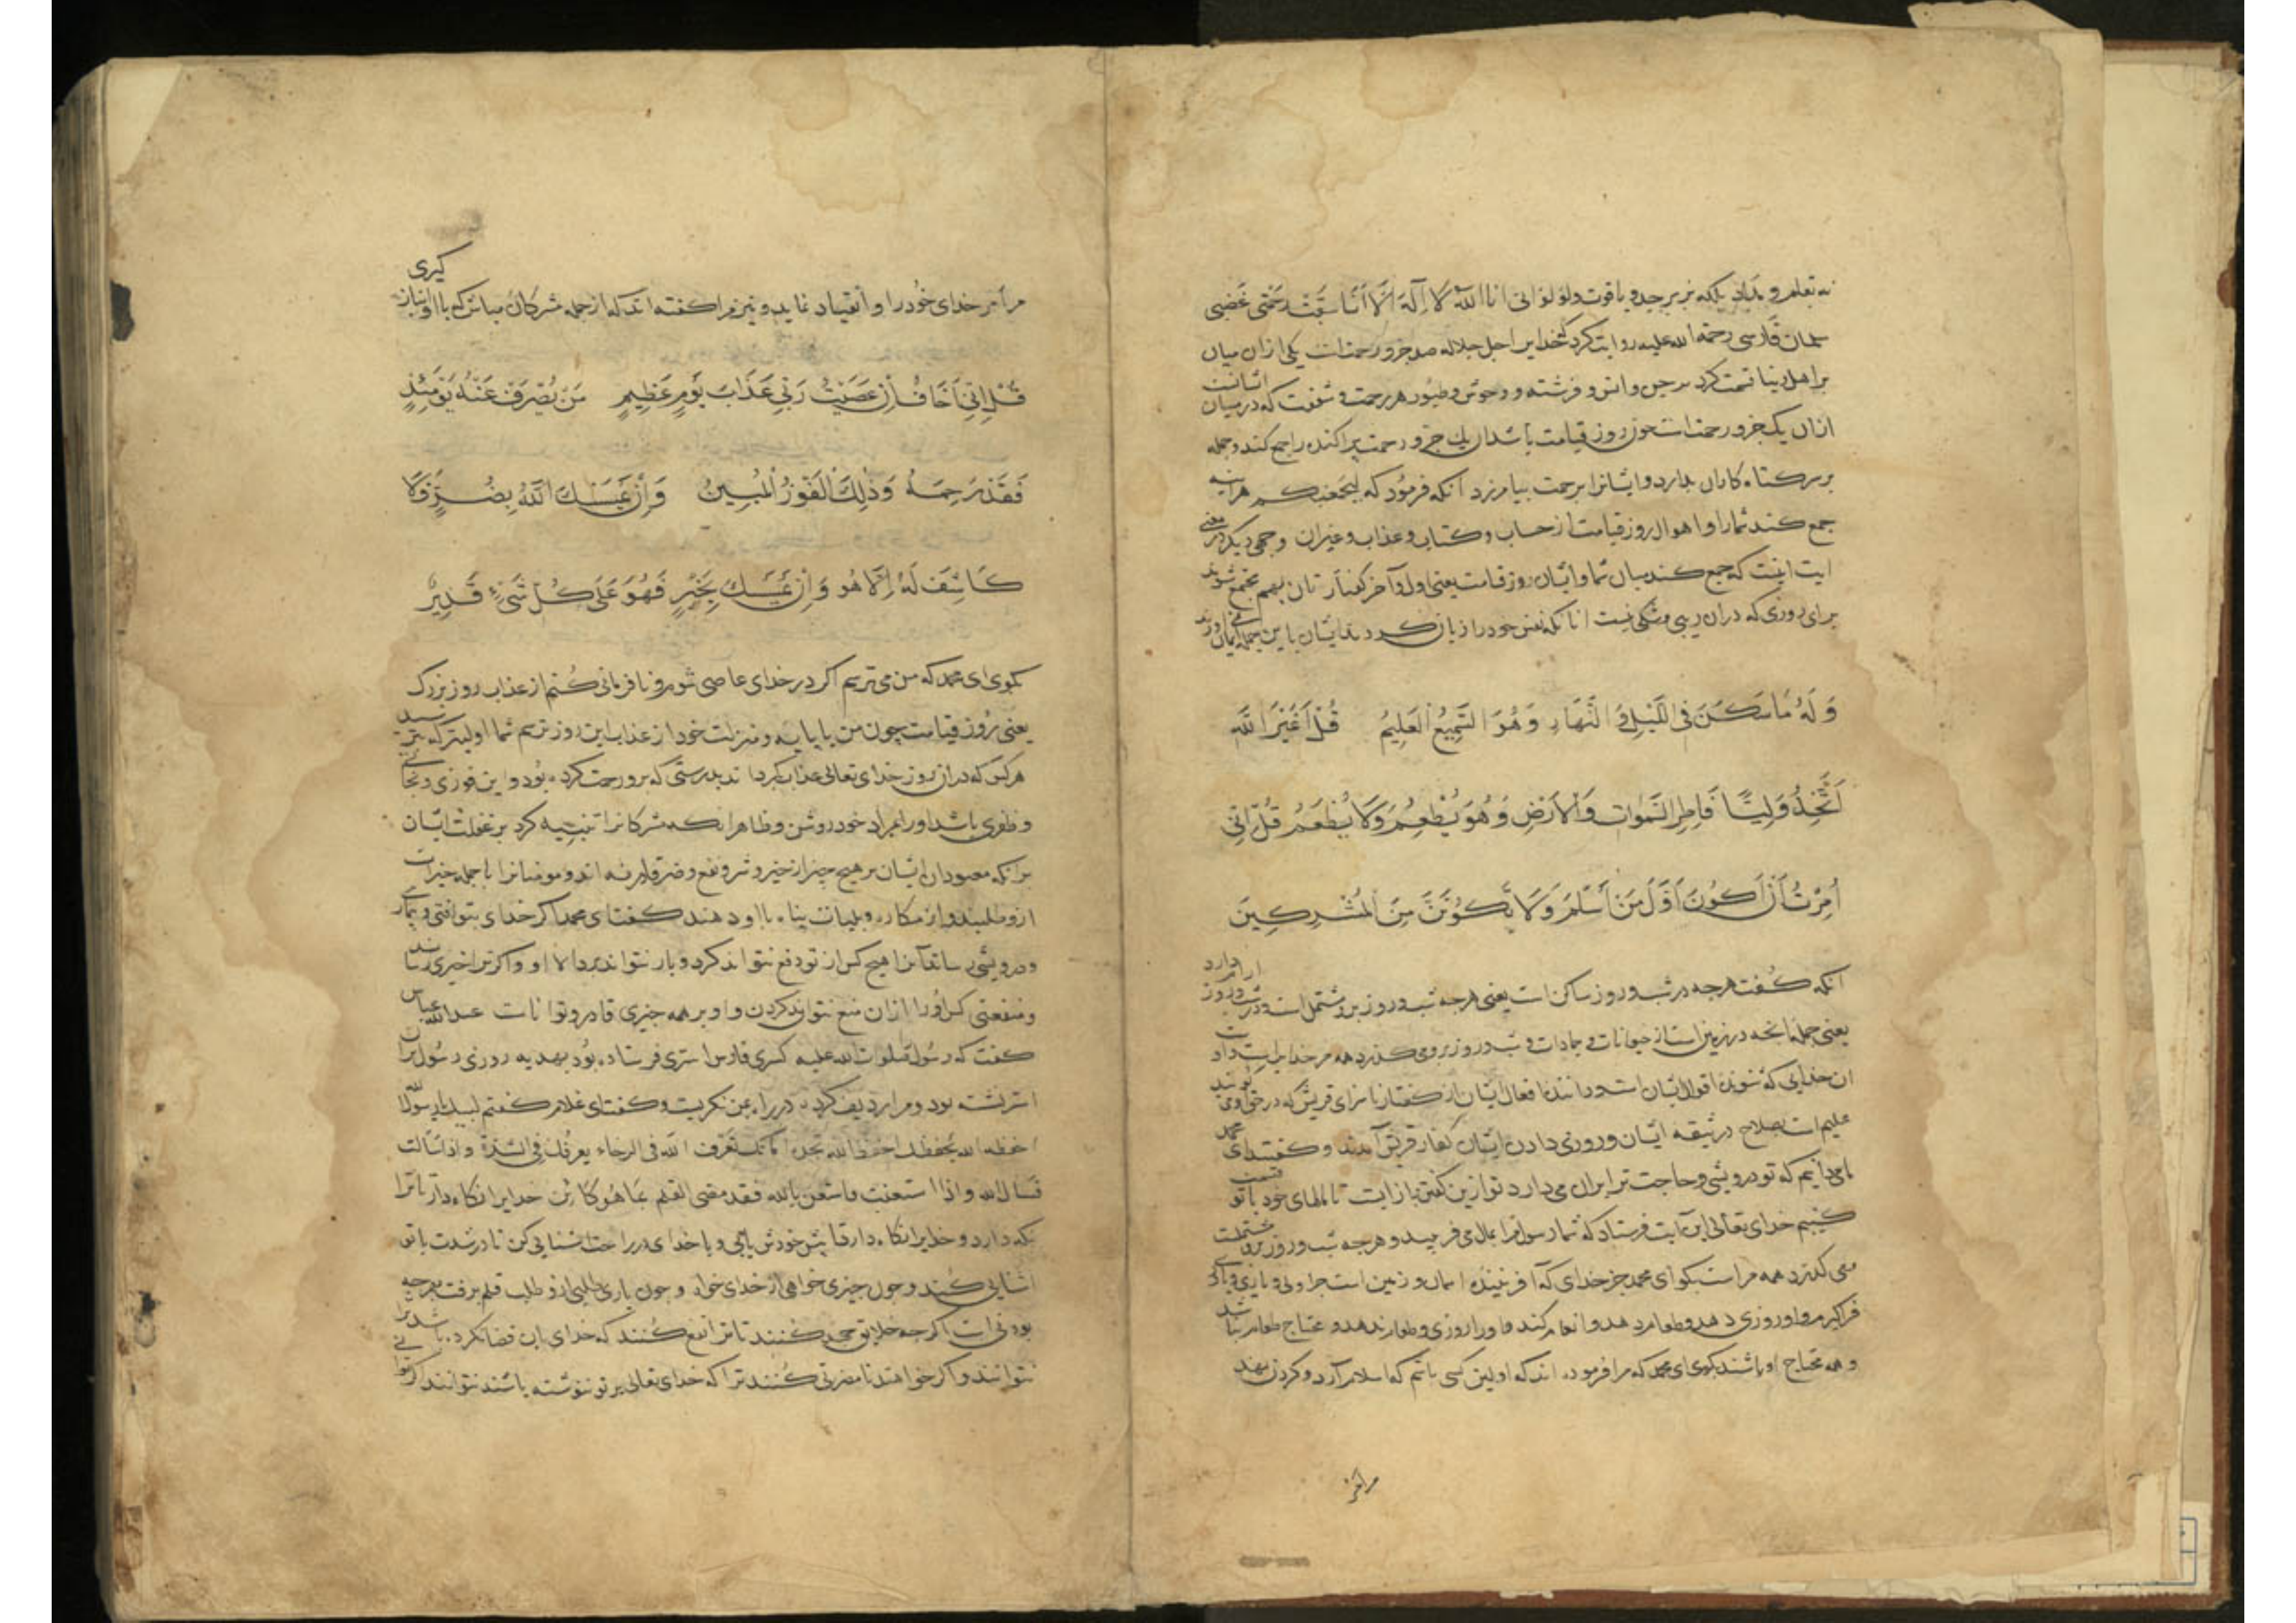 نه بقلم و مداد بلکه بزبرجد و یاقوت و لولو انی انا الله لا اله الا انا سبقت رحمتی غضبی
سلمان فارسی رحمة الله علیه روایت کرد کخدایرا جل جلاله صد جزو رحمتست یکی ازان میان
بر اهل دنیا قسمت کرد بر جن و انس و فرشته و وحوش و طیور هر رحمت و شفقت که در میان ایشانست
ازان یک جزو رحمتست چون روز قیامت باشد ان یک جزو رحمت پراکنده را جمع کند و جمله
بر سر کناه کاران بدارد و ایشانرا برحمت بیامرزد انکه فرمود که لیجمعنکم هراینه
جمع کند شما را و اهوال روز قیامت از حساب و کتاب و عذاب و غیران و وجهی دیکر در معنی
ایت اینست که جمع کند میان شما و ایشان روز قیامت یعنی اول و آخر کفتار تان بهم مجتمع شوند
برای روزی که دران ریبی و شکی نیست انانکه نفس خود را زیان کردند ایشان باین جمله ایمان نمی اورند
وَلَهُ مَا سَكَنَ فِى اللَّيْلِ وَ النَّهَارِ وَهُوَ السَّمِيعُ الْعَلِيمُ قُلْ أَغَيْرَ اللَّهِ
أَتَّخِذُ وَلِيًّا فَاطِرِ السَّمٰوَاتِ وَالْأَرْضِ وَهُوَ يُطْعِمُ وَلَا يُطْعَمُ قُلْ إِنِّى
أُمِرْتُ أَنْ أَكُونَ أَوَّلَ مَنْ أَسْلَمَ وَلَا تَكُونَنَّ مِنَ الْمُشْرِكِينَ
انکه کفت هرچه در شب و روز ساکن است یعنی هرچه شب و روز برو مشتمل است و در شب و روز ارام دارد
یعنی جمله انچه در زمین است از حیوانات و جمادات و شب و روز بروی میکذرد همه مر خدایراست و او
ان خدایی که شنونده اقوال ایشان است و داننده افعال ایشان از کفتار ناسزای قریش که در حق او می کویند
علیم است بصلاح در شیقه ایشان و روزی دادن ایشان کفار قریش آمدند و کفتند ای محمد
ما می دانیم که تو درویشی و حاجت ترا بران می دارد تو ازین کفتن باز ایست تا مالهای خود با تو قسمت
کنیم خدای تعالی این آیت فرستاد که شما رسول مرا بمال می فریبید و هرچه شب و روز برو مشتملست
می کذرد همه مراست بکو ای محمد جز خدای که آفریننده اسمان و زمین است جز او ولی و یاری و یاوری
فراکیرم و او روزی دهد و طعام دهد و انعام کند و او را روزی و طعام ندهد و محتاج طعام نباشد
و همه محتاج او باشند بکوی ای محمد که مرا فرموده اند که اولین کسی باشم که اسلام آرد و کردن نهد
مر امر
مر أمر خدای خود را و أنقیاد نماید و نیز مرا کفته اند که از جمله مشرکان مباش که با او انباز کیری
قُلْ إِنِّى أَخَافُ إِنْ عَصَيْتُ رَبِّى عَذَابَ يَوْمٍ عَظِيمٍ مَنْ يُصْرَفْ عَنْهُ يَوْمَئِذٍ
فَقَدْ رَحِمَهُ وَذٰلِكَ الْفَوْزُ الْمُبِينُ وَإِنْ يَمْسَسْكَ اللَّهُ بِضُرٍّ فَلَا
كَاشِفَ لَهُ إِلَّا هُوَ وَإِنْ يَمْسَسْكَ بِخَيْرٍ فَهُوَ عَلَى كُلِّ شَىْءٍ قَدِيرٌ
بکوی ای محمد که من می ترسم اکر در خدای عاصی شوم و نافرمانی کنم از عذاب روز بزرک
یعنی روز قیامت چون من با پایه و منزلت خود از عذاب این روز ترسم شما اولیتر که بترسید
هر کس که دران روز خدای تعالی عذاب بکرداند بدرستی که برو رحمت کرده بود و این فوزی و نجاتی
و ظفری باشد او را بمراد خود روشن و ظاهر انکه مشرکانرا تنبیه کرد بر غفلت ایشان
برانکه معبودان ایشان بر هیچ چیز از خیر و شر و نفع و ضر قادر نه اند و مومنانرا تا جمله خیرات
ازو طلبند و از مکاره و بلیات پناه با او دهند کفت ای محمد اکر خدای بتو آفتی و بیماری
و درویشی رساند آنرا هیچ کس از تو دفع نتواند کرد و باز نتواند برد الا او و اکر ترا خیری رساند
و منفعتی کس او را ازان منع نتواند کردن و او بر همه چیزی قادر و تواناست عبدالله عباس
کفت که رسول صلوات الله علیه کسری فارس استری فرستاده بود بهدیه روزی رسول بران
استر نشسته بود و مرا ردیف کرده در راه بمن نکریست و کفت ای غلام کفتم لبیک یا رسول الله
احفظ الله یحفظک احفظ الله تجده امامک تعرف الله فی الرخاء یعرفک فی الشدة و اذا سألت
فسأل الله و اذا استعنت فاستعن بالله فقد مضی القلم بما هو کائن خدایرا نکاه دار تا ترا
نکه دارد و خدایرا نکاه دار تا پیش خودش یابی و با خدای در راحت اشنایی کن تا در شدت با تو
اشنایی کند و چون چیزی خواهی از خدای خواه و چون یاری طلبی ازو طلب قلم برفت بهرچه
بودنی است اکر جمله خلایق جهد کنند تا ترا نفع کنند که خدای ان قضا نکرده باشد ترا
نتوانند و اکر خواهند تا مضرتی کنند ترا که خدای تعالی بر تو ننوشته باشد نتوانند